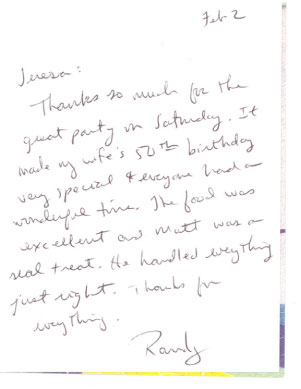 Feb 2
Teresa:
Thanks so much for the
great party on Saturday. It
made my wife's 50th birthday
very special & everyone had a
wonderful time. The food was
excellent and Matt was a
real treat. He handled everything
just right. Thanks for
everything.
Randy